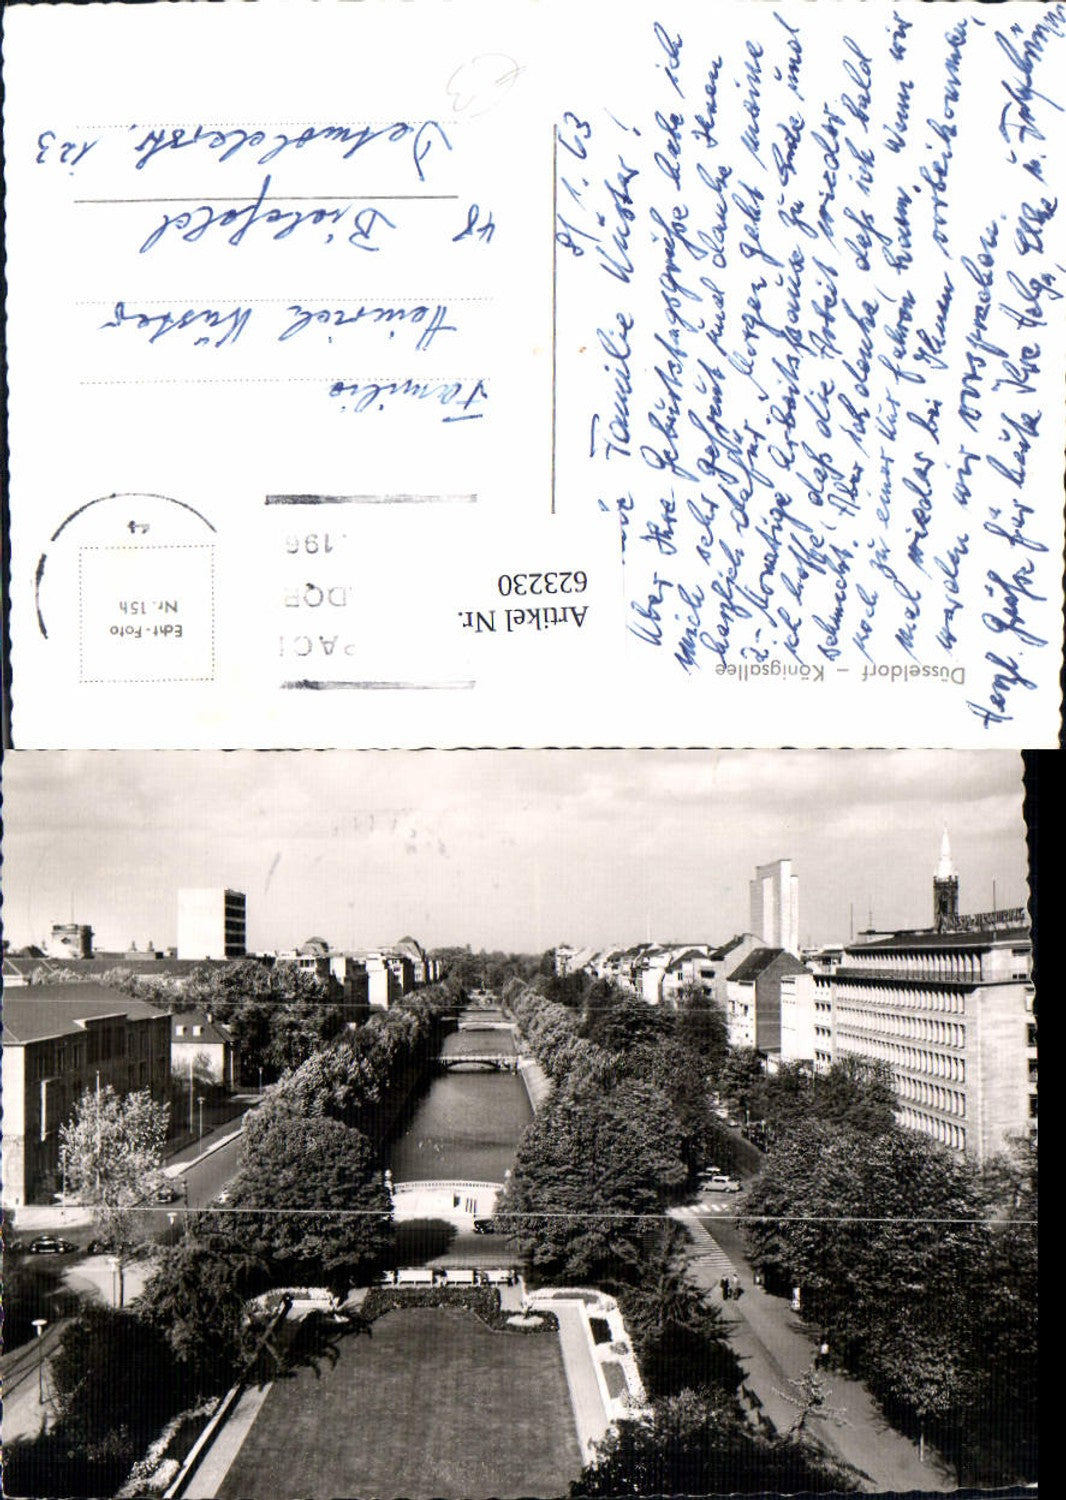 8/1.63
Familie Küster!
Über Ihre Geburtstagsgrüße habe ich
mich sehr gefreut und danke Ihnen
herzlich dafür. Morgen geht meine
2-monatige Arbeitspause zu Ende und
ich hoffe, daß die Arbeit wieder
schmeckt. Aber ich denke, daß ich bald
noch zu einer Kur fahren kann. Wenn wir
mal wieder bei Ihnen vorbeikommen,
werden wir vorsprechen.
Herzl. Grüße für heute Ihre
Familie
Heinrich Küster
48 Bielefeld
Detmolderstr. 123
Echt-Foto
Nr. 15h
Artikel Nr.
623230
Düsseldorf – Königsallee